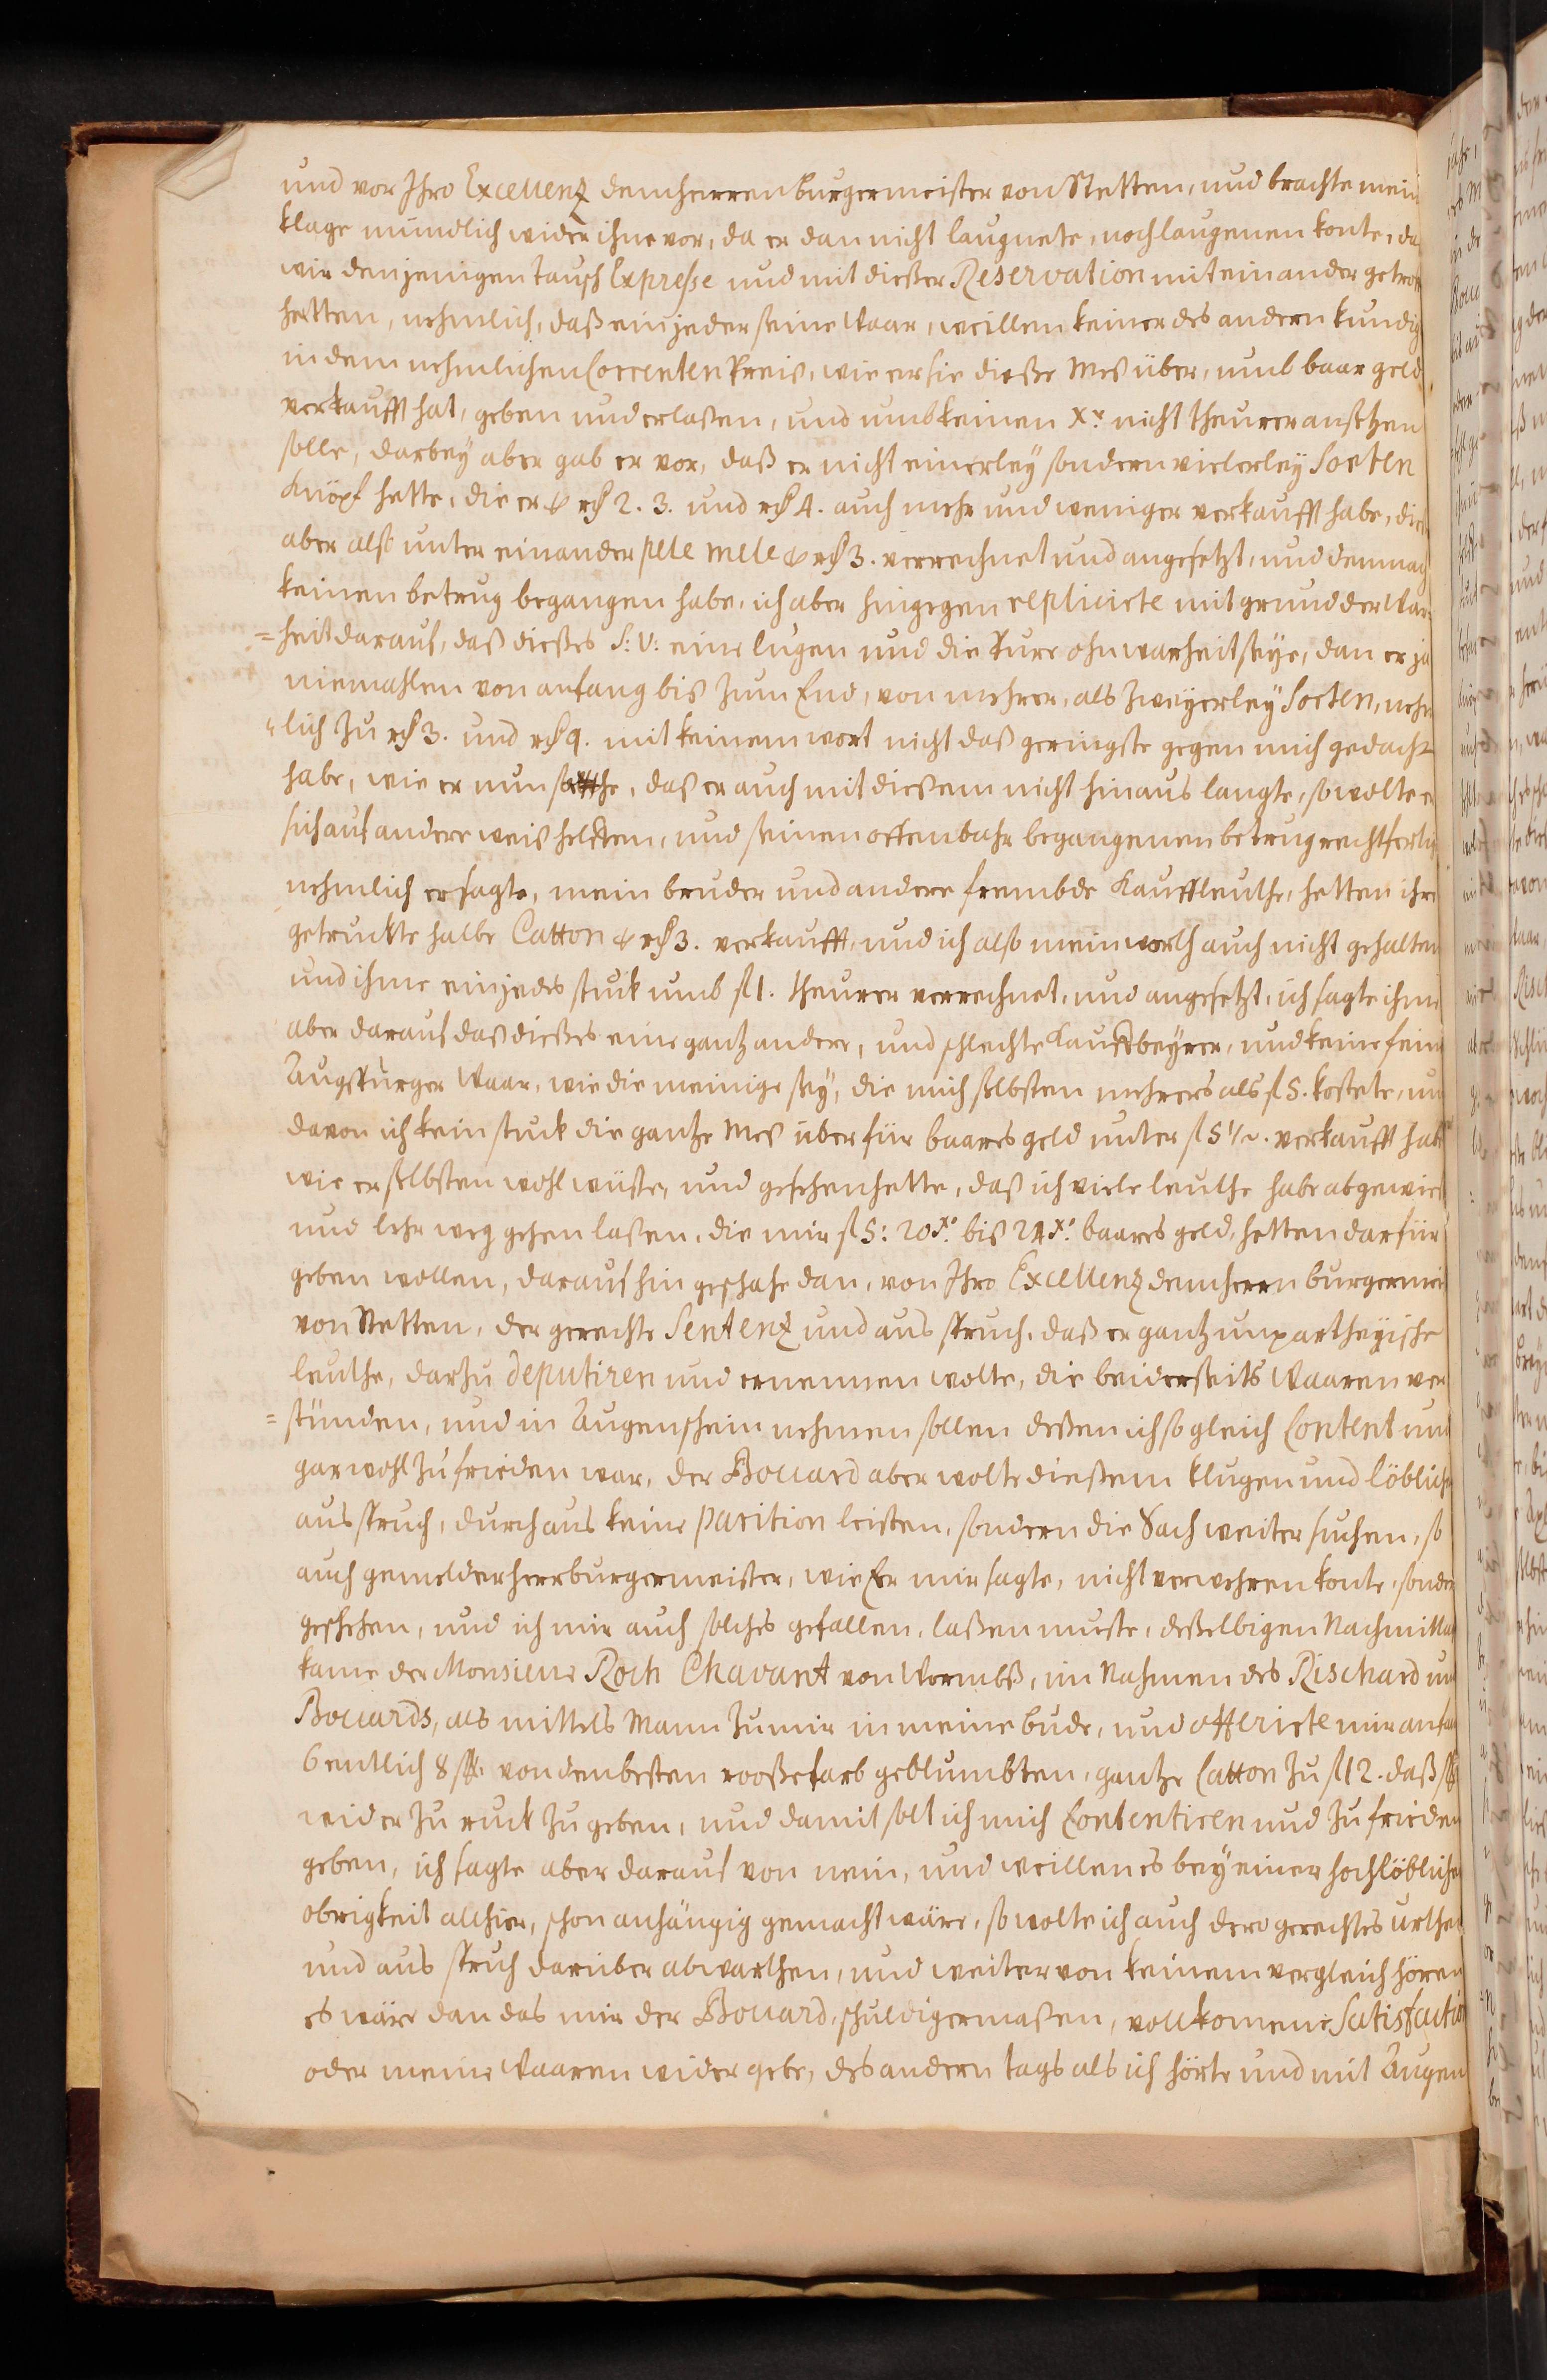 und vor Ihro Excellenz dem herren burgermeister von Stetten, und brachte mein
klage mündlich wider ihne vor, da er dan nicht laugnete, noch laugenen konte, da
wir denjenigen Tausch Expresse und mit dießer Reservation mit einander getrof
hetten, nehmlich, daß ein jeder seine Waar, weillen keiner des andern kundig
in dem nehmlichen Correnten Preis, wie er sie dieße Mes über, umb baar geld
verkaufft hat, geben und erlaßen, und umb keinen Xr. nicht theurer ansetzen
solle, darbey aber gab er vor, daß er nicht einerley sondern vielerley Sorten
Knöpf hette, die er 2. 3. und 4. auch mehr und weniger verkaufft habe, dies
aber also unter einander pele mele 3. verrechnet und angesetzt, und demnach
keinen betrug begangen habe, ich aber hingegen replicirte mit grund der War
= heit darauf, daß dießes S: V: eine lugen und die Pure ohnwarheit seye, dan er ja
niemahlen von anfang bis zum End, von mehrer, als zweyerley Sorten, nehm
= lich zu 3. und 9. mit keinem wort nicht daß geringste gegen mich gedacht
habe, wie er nun sahe, daß er auch mit dießem nicht hinaus langte, so wolte er
sich auf andere weis helffen, und seinen offenbahr begangenen betrug rechtfertig
nehmlich er sagte, mein bruder und andere frembde Kauffleuthe, hetten ihre
getruckte halbe Catton 3. verkaufft, und ich also mein worth auch nicht gehalten
und ihme ein jedes stuck umb fl 1. theurer verrechnet, und angesetzt, ich sagte ihme
aber darauf daß dießes eine gantz andere, und schlechte Kauffbeyrer, und keine feine
Augspurger Waar, wie die meinige sey, die mich selbsten mehrers als fl 5. kostete, un
davon ich kein stuck die gantze Mes über für baares geld unter fl 5 1/2. verkaufft habe
wie er selbsten wohl wüste, und gesehen hette, daß ich viele leuthe habe abgewies
und lehr weg gehen laßen, die mir fl 5: 20 Xr. bis 24 Xr. baares geld, hetten darfür
geben wollen, darauf hin geschahe dan, von Ihro Excellenz dem herrn burgermeis
von Stetten, der gerechte Sentenz und aus spruch, daß er gantz unpartheyische
leuthe, darzu deputiren und ernennen wolte, die beiderseits Waaren ver
= stünden, und in Augenschein nehmen sollen deßen ich so gleich Content und
gar wohl zu frieden war, der Bouard aber wolte dießem klugen und löbliche
aus spruch, durchaus keine parition leisten, sondern die Sach weiter suchen, so
auch gemelder herr burgermeister, wie Er mir sagte, nicht verwehren konte, sonder
geschehen, und ich mir auch solches gefallen, laßen muste, deßelbigen Nachmittag
kame der Monsieur Roch Chavant von Wormbß, im Nahmen des Rischard und
Bouards, als mittels Mann zu mir in meine bude, und offerirte mir anfan
6 entlich 8 von den besten rooßefarb geblumbten, gantze Catton zu fl 12. daß
wider zu ruck zu geben, und damit solt ich mich Contentiren und zu frieden
geben, ich sagte aber darauf von nein, und weillen es bey einer hochlöblichen
obrigkeit allhier, schon anhängig gemacht wäre, so wolte ich auch dero gerechtes urthel
und aus spruch darüber abwarthen, und weiter von keinem vergleich hören
es wäre dan das mir der Bouard, schuldigermaßen, vollkomene Satisfaction
oder meine Waaren wider gebe, des andern tags als ich hörte und mit Augen